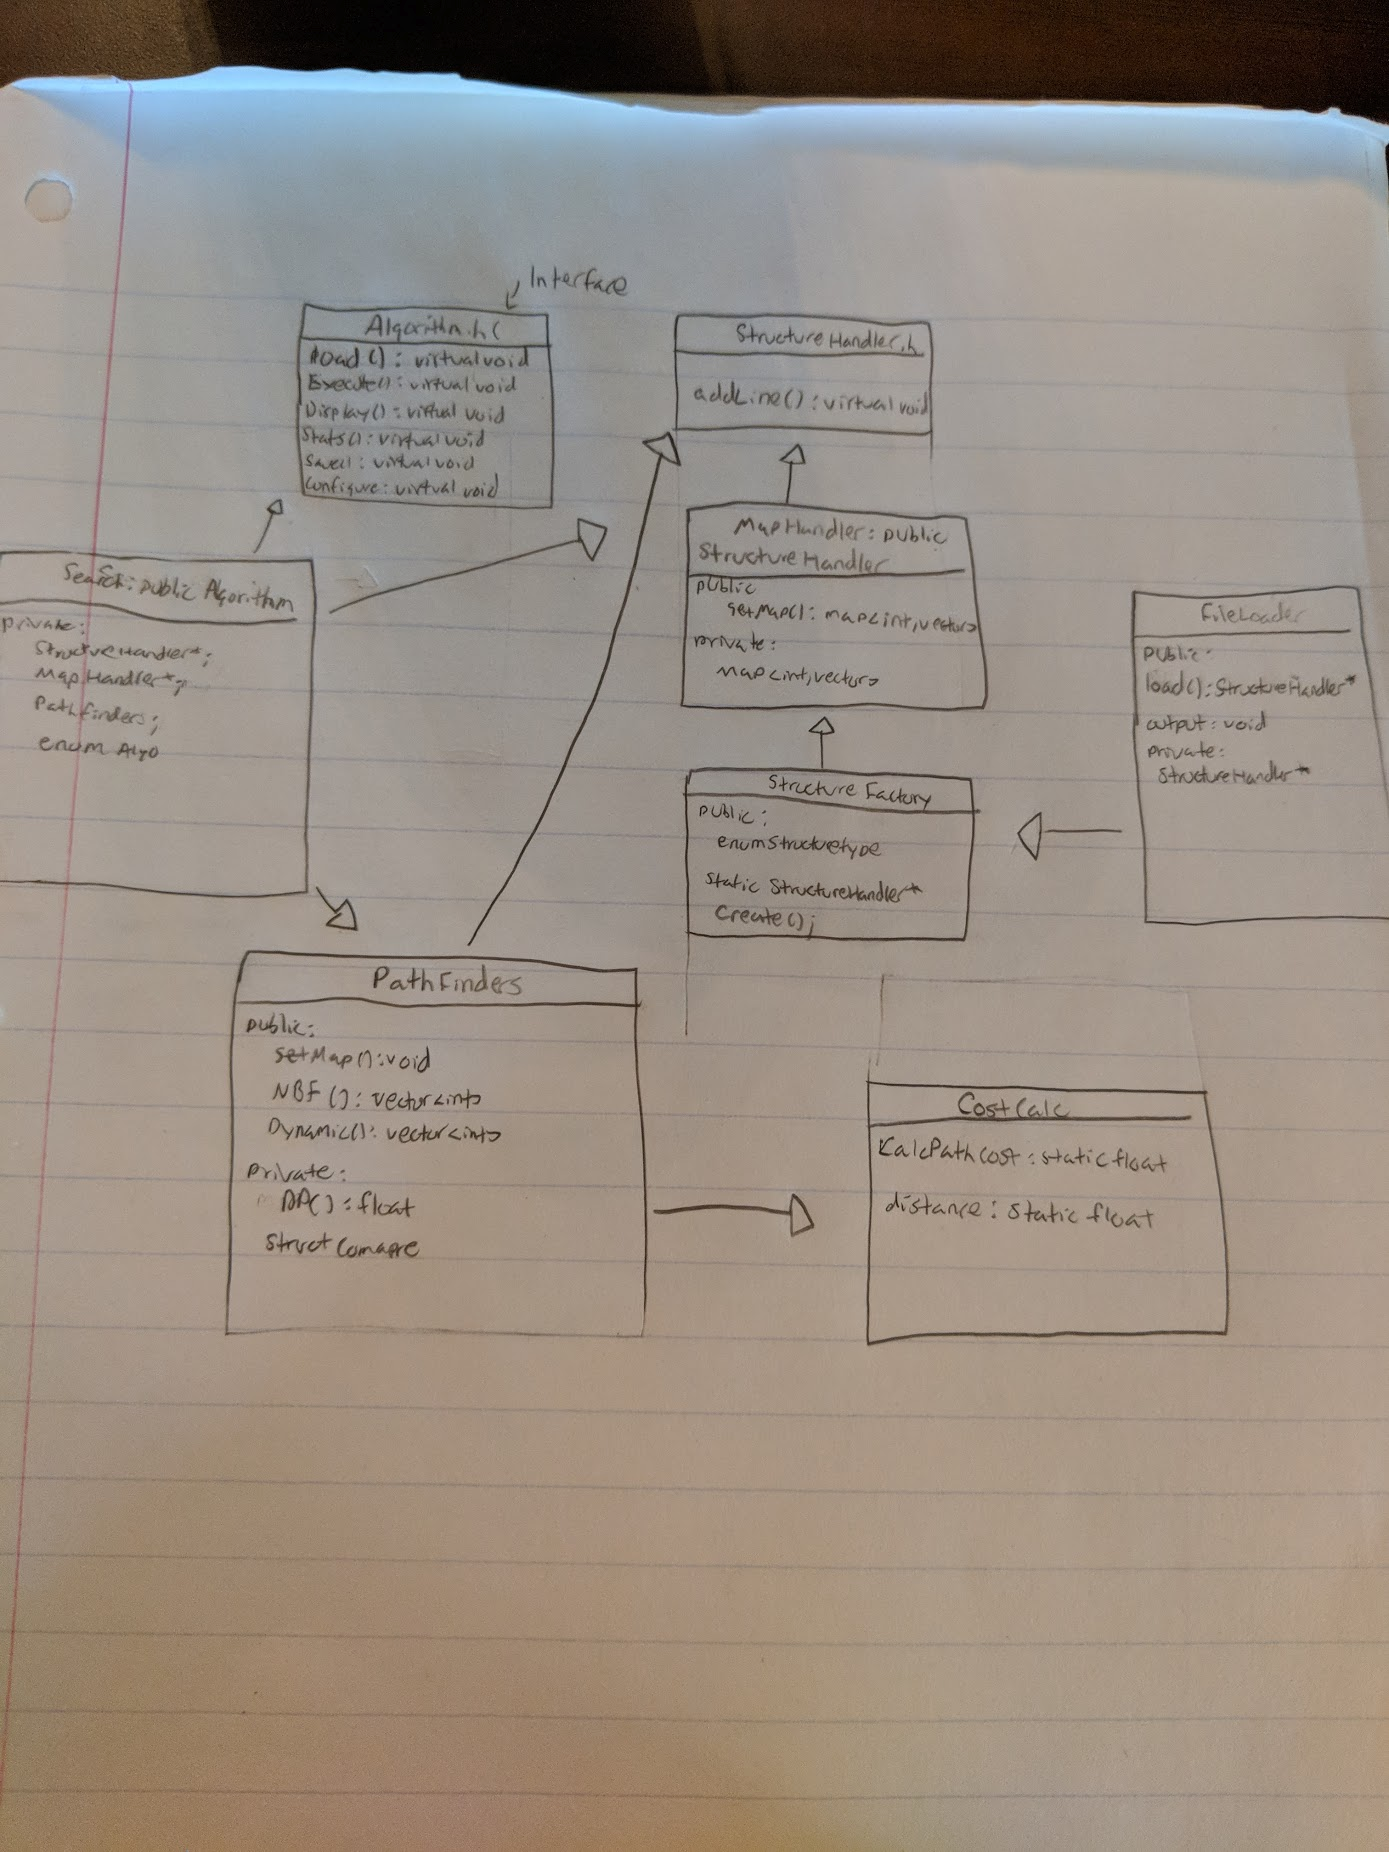 Interface
Algorithm.h (
load() : virtual void
Execute() : virtual void
Display() : virtual void
Stats() : virtual void
Save() : virtual void
Configure : virtual void
StructureHandler.h
addLine() : virtual void
Search : public Algorithm
private:
StructureHandler*;
MapHandler*;
Pathfinders;
enum Algo
MapHandler : public
StructureHandler
public
getMap() : map<int,vector>
private:
map<int,vector>
FileLoader
public:
load() : StructureHandler*
output : void
private:
StructureHandler*
Structure Factory
public:
enum Structuretype
static StructureHandler*
Create();
PathFinders
public:
setMap() : void
NBF () : vector<int>
Dynamic() : vector<int>
private:
DP() : float
struct Comapre
CostCalc
CalcPathCost : static float
distance : static float